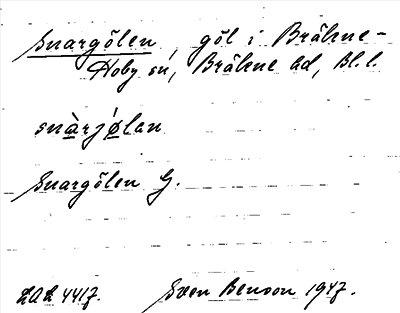 Snargölen, göl i Bräkne-
Hoby sn, Bräkne hd, Bl. l.
snàrjǿlan
Snargölen G.
LAL 4417.
Sven Benson 1947.